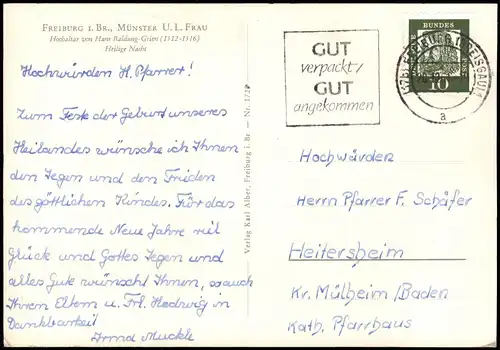 FREIBURG I. BR., MÜNSTER U. L. FRAU
Hochaltar von Hans Baldung-Grien (1512-1516)
Heilige Nacht
Hochwürden H. Pfarrer!
Zum Feste der Geburt unseres
Heilandes wünsche ich Ihnen
den Segen und den Frieden
des göttlichen Kindes. Für das
kommende Neue Jahre viel
Glück und Gottes Segen und
alles Gute wünscht Ihnen, so auch
Ihren Eltern u. Frl. Hedwig in
Dankbarkeit
Irma Muckle
Verlag Karl Alber, Freiburg i. Br — Nr. 172
GUT
verpackt/
GUT
angekommen
FREIBURG (BREISGAU)
a
BUNDES
10
Hochwürden
Herrn Pfarrer F. Schäfer
Heitersheim
Kr. Mülheim/Baden
Kath. Pfarrhaus